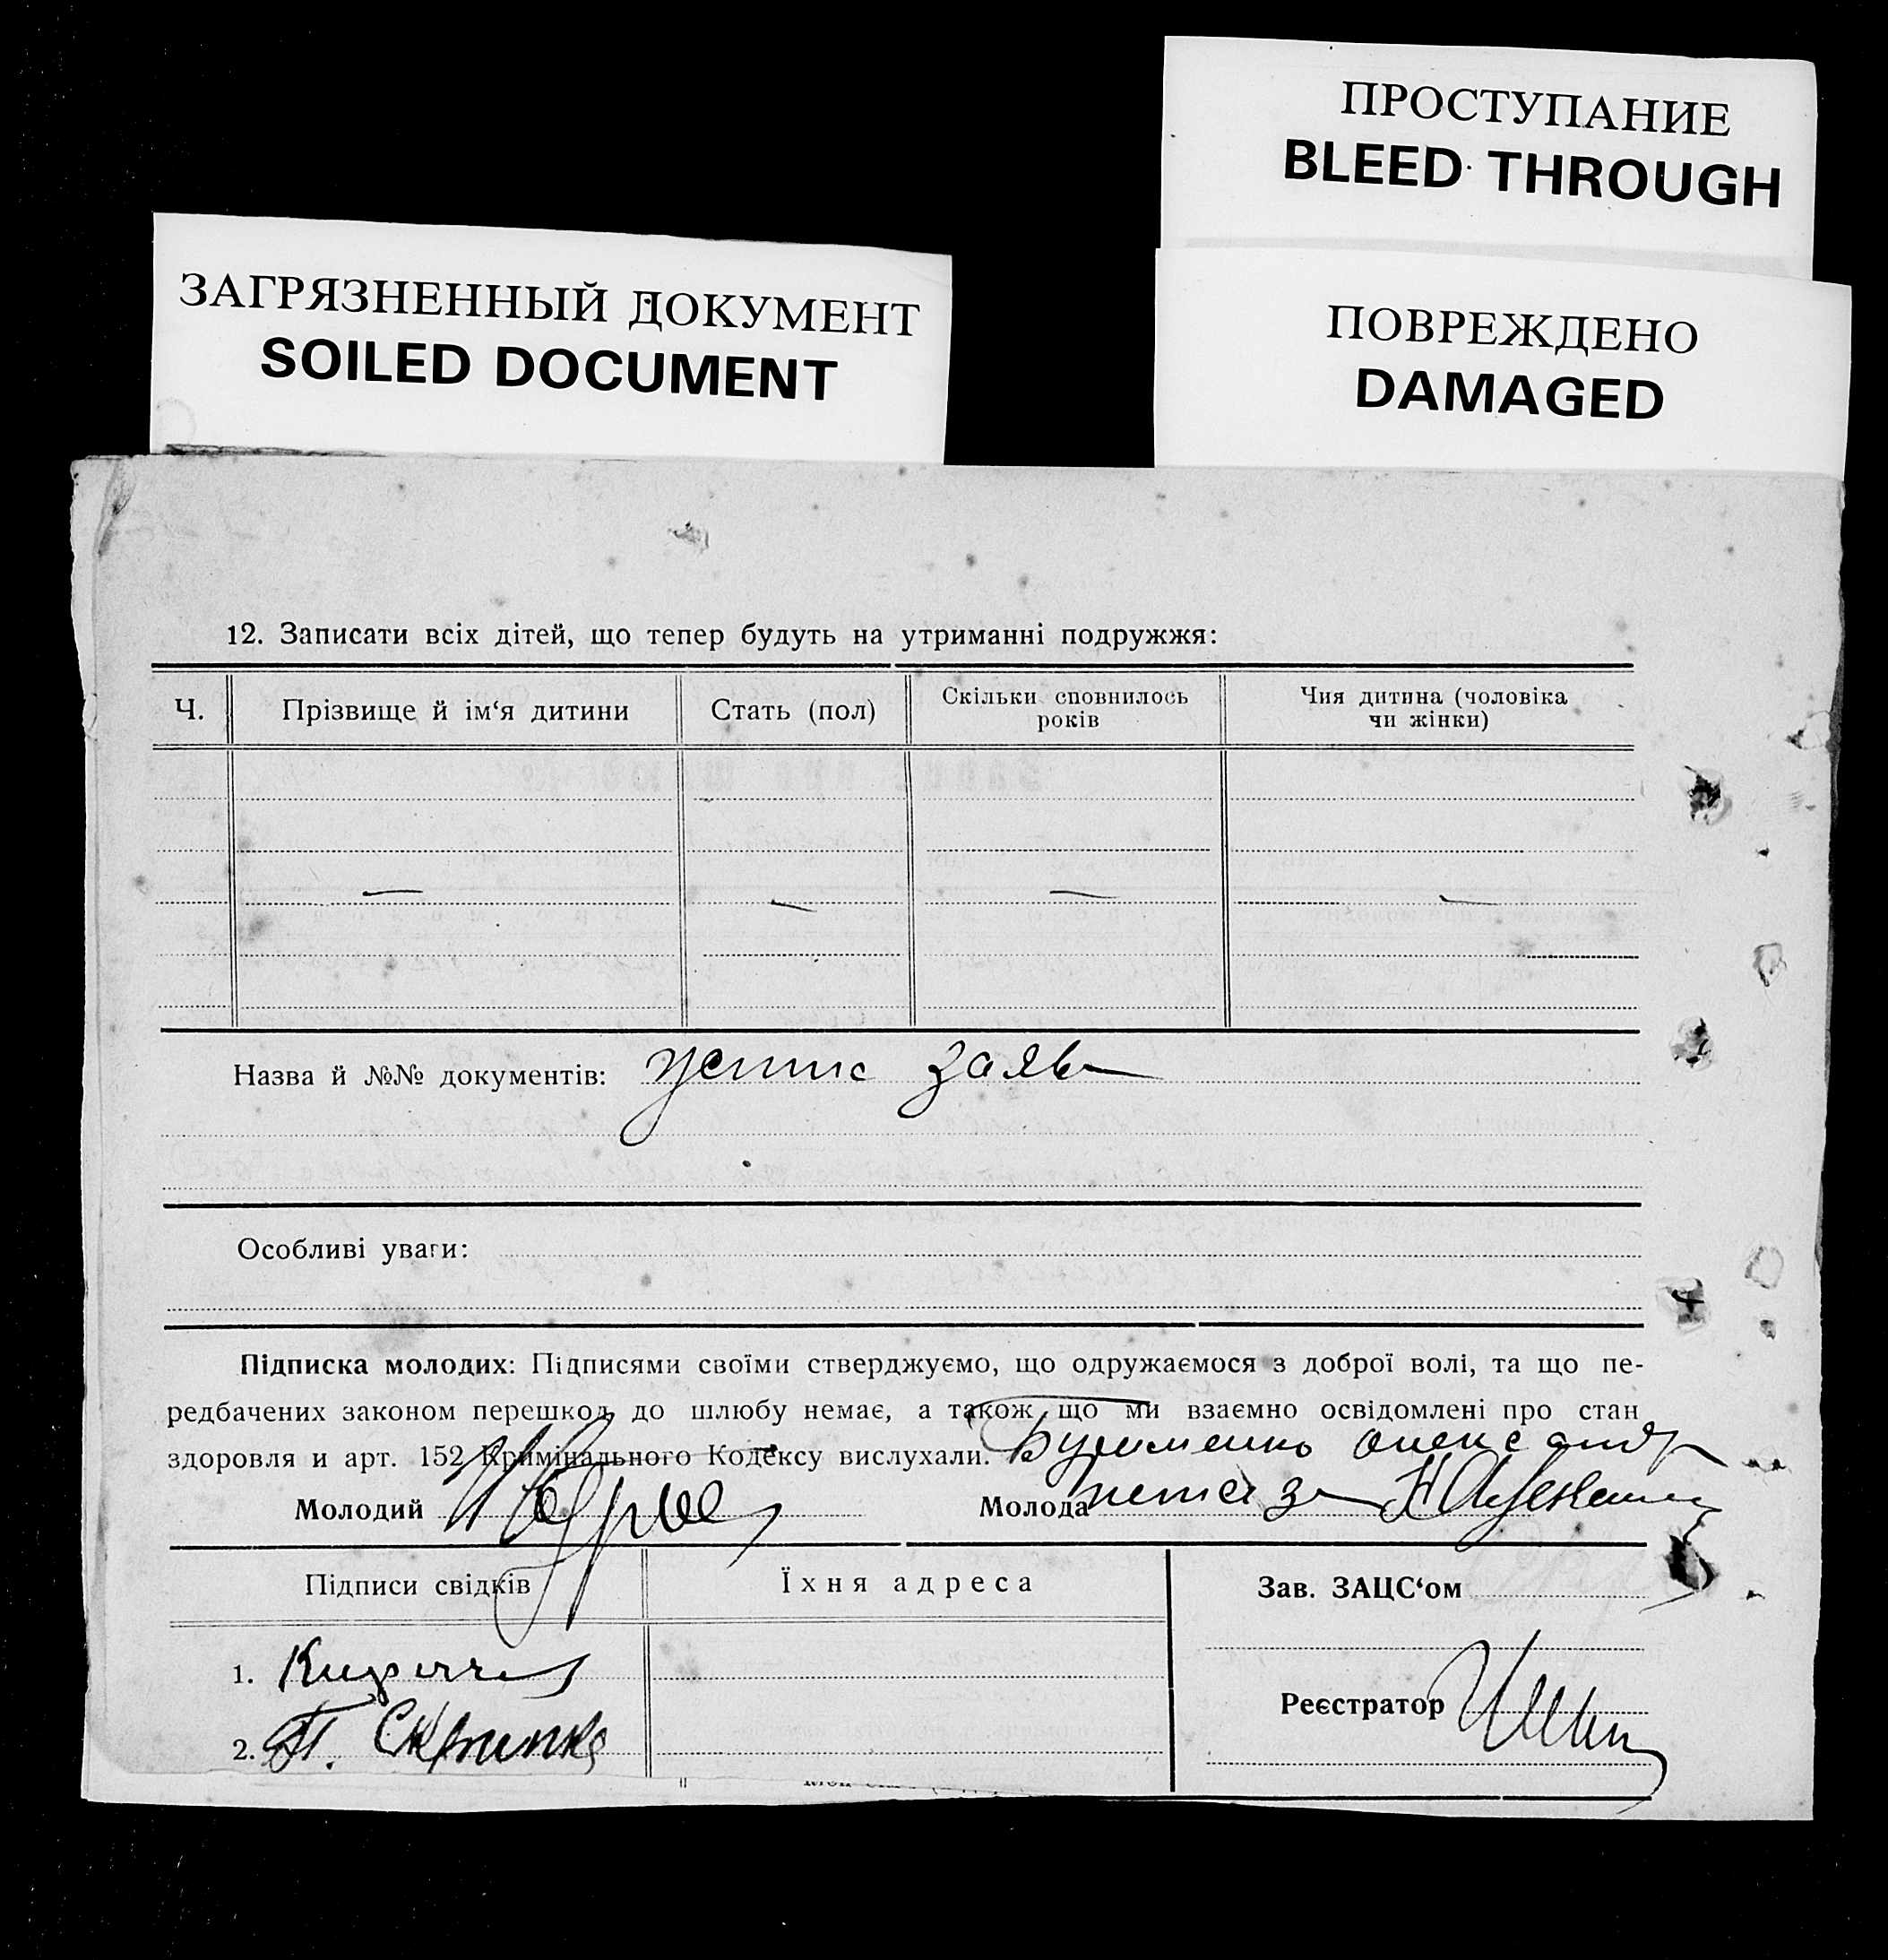 ПРОСТУПАНИЕ
BLEED THROUGH
ЗАГРЯЗНЕННЫЙ ДОКУМЕНТ
SOILED DOCUMENT
ПОВРЕЖДЕНО
DAMAGED
12. Записати всіх дітей, що тепер будуть на утриманні подружжя:
Ч. Прізвище й ім‘я дитини Стать (пол) Скільки сповнилось років Чия дитина (чоловіка чи жінки)
— — — —
Назва й №№ документів: устне заяв
Особливі уваги:
Підписка молодих: Підписями своїми стверджуємо, що одружаємося з доброї волі, та що пе-
редбачених законом перешкод до шлюбу немає, а також що ми взаємно освідомлені про стан
здоровля и арт. 152 Кримінального Кодексу вислухали.
Молодий Молода
Підписи свідків Їхня адреса Зав. ЗАЦС‘ом
1.
Реєстратор
2. П. Скрипка